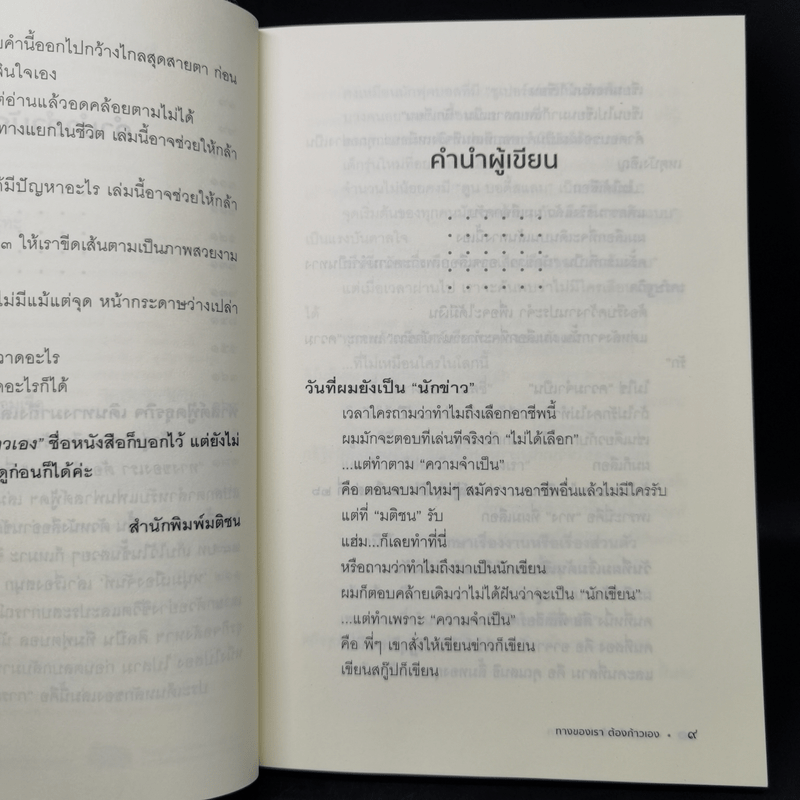 คำนี้ออกไปกว้างไกลสุดสายตา ก่อน
สินใจเอง
อ่านแล้วอดคล้อยตามไม่ได้
ทางแยกในชีวิต เล่มนี้อาจช่วยให้กล้า
มีปัญหาอะไร เล่มนี้อาจช่วยให้กล้า
๓ ให้เราขีดเส้นตามเป็นภาพสวยงาม
ไม่มีแม้แต่จุด หน้ากระดาษว่างเปล่า
วาดอะไร
อะไรก็ได้
าวเอง" ชื่อหนังสือก็บอกไว้ แต่ยังไม่
ดูก่อนก็ได้ค่ะ
สำนักพิมพ์มติชน
คำนำผู้เขียน
วันที่ผมยังเป็น "นักข่าว"
เวลาใครถามว่าทำไมถึงเลือกอาชีพนี้
ผมมักจะตอบทีเล่นทีจริงว่า "ไม่ได้เลือก"
...แต่ทำตาม "ความจำเป็น"
คือ ตอนจบมาใหม่ๆ สมัครงานอาชีพอื่นแล้วไม่มีใครรับ
แต่ที่ "มติชน" รับ
แฮ่ม...ก็เลยทำที่นี่
หรือถามว่าทำไมถึงมาเป็นนักเขียน
ผมก็ตอบคล้ายเดิมว่าไม่ได้ฝันว่าจะเป็น "นักเขียน"
...แต่ทำเพราะ "ความจำเป็น"
คือ พี่ๆ เขาสั่งให้เขียนข่าวก็เขียน
เขียนสกู๊ปก็เขียน
ทางของเรา ต้องก้าวเอง • ๙